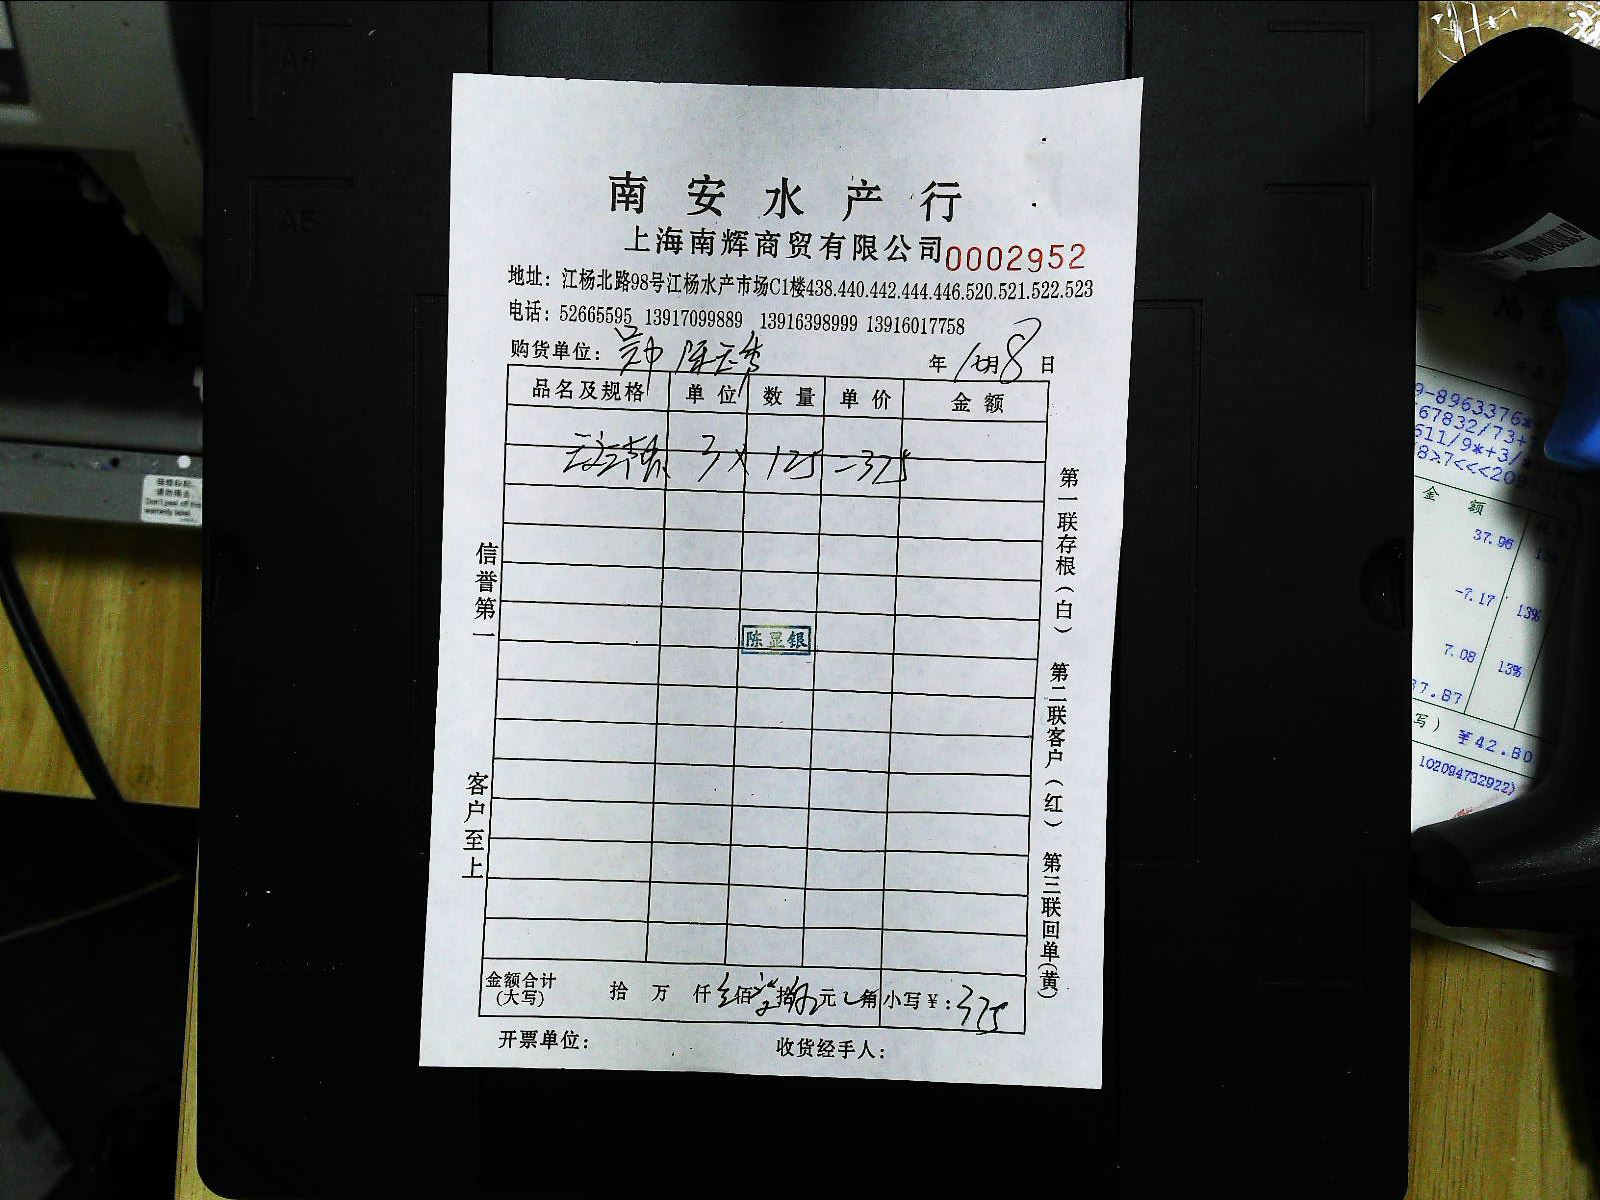 南安水产行
上海南辉商贸有限公司 0002952
地址：江杨北路98号江杨水产市场C1楼438.440.442.444.446.520.521.522.523
电话：52665595 13917099889 13916398999 13916017758
购货单位：
年 月 8 日
品名及规格 单位 数量 单价 金额
3 × 125 = 375
陈显银
金额合计（大写） 拾 万 仟 佰 拾 元 角 小写￥：375
开票单位： 收货经手人：
信誉第一
客户至上
第一联存根（白）
第二联客户（红）
第三联回单（黄）
A4
A5
金 额
37.96
-7.17 13%
7.08 13%
37.87
写) ￥42.80
102094732922)